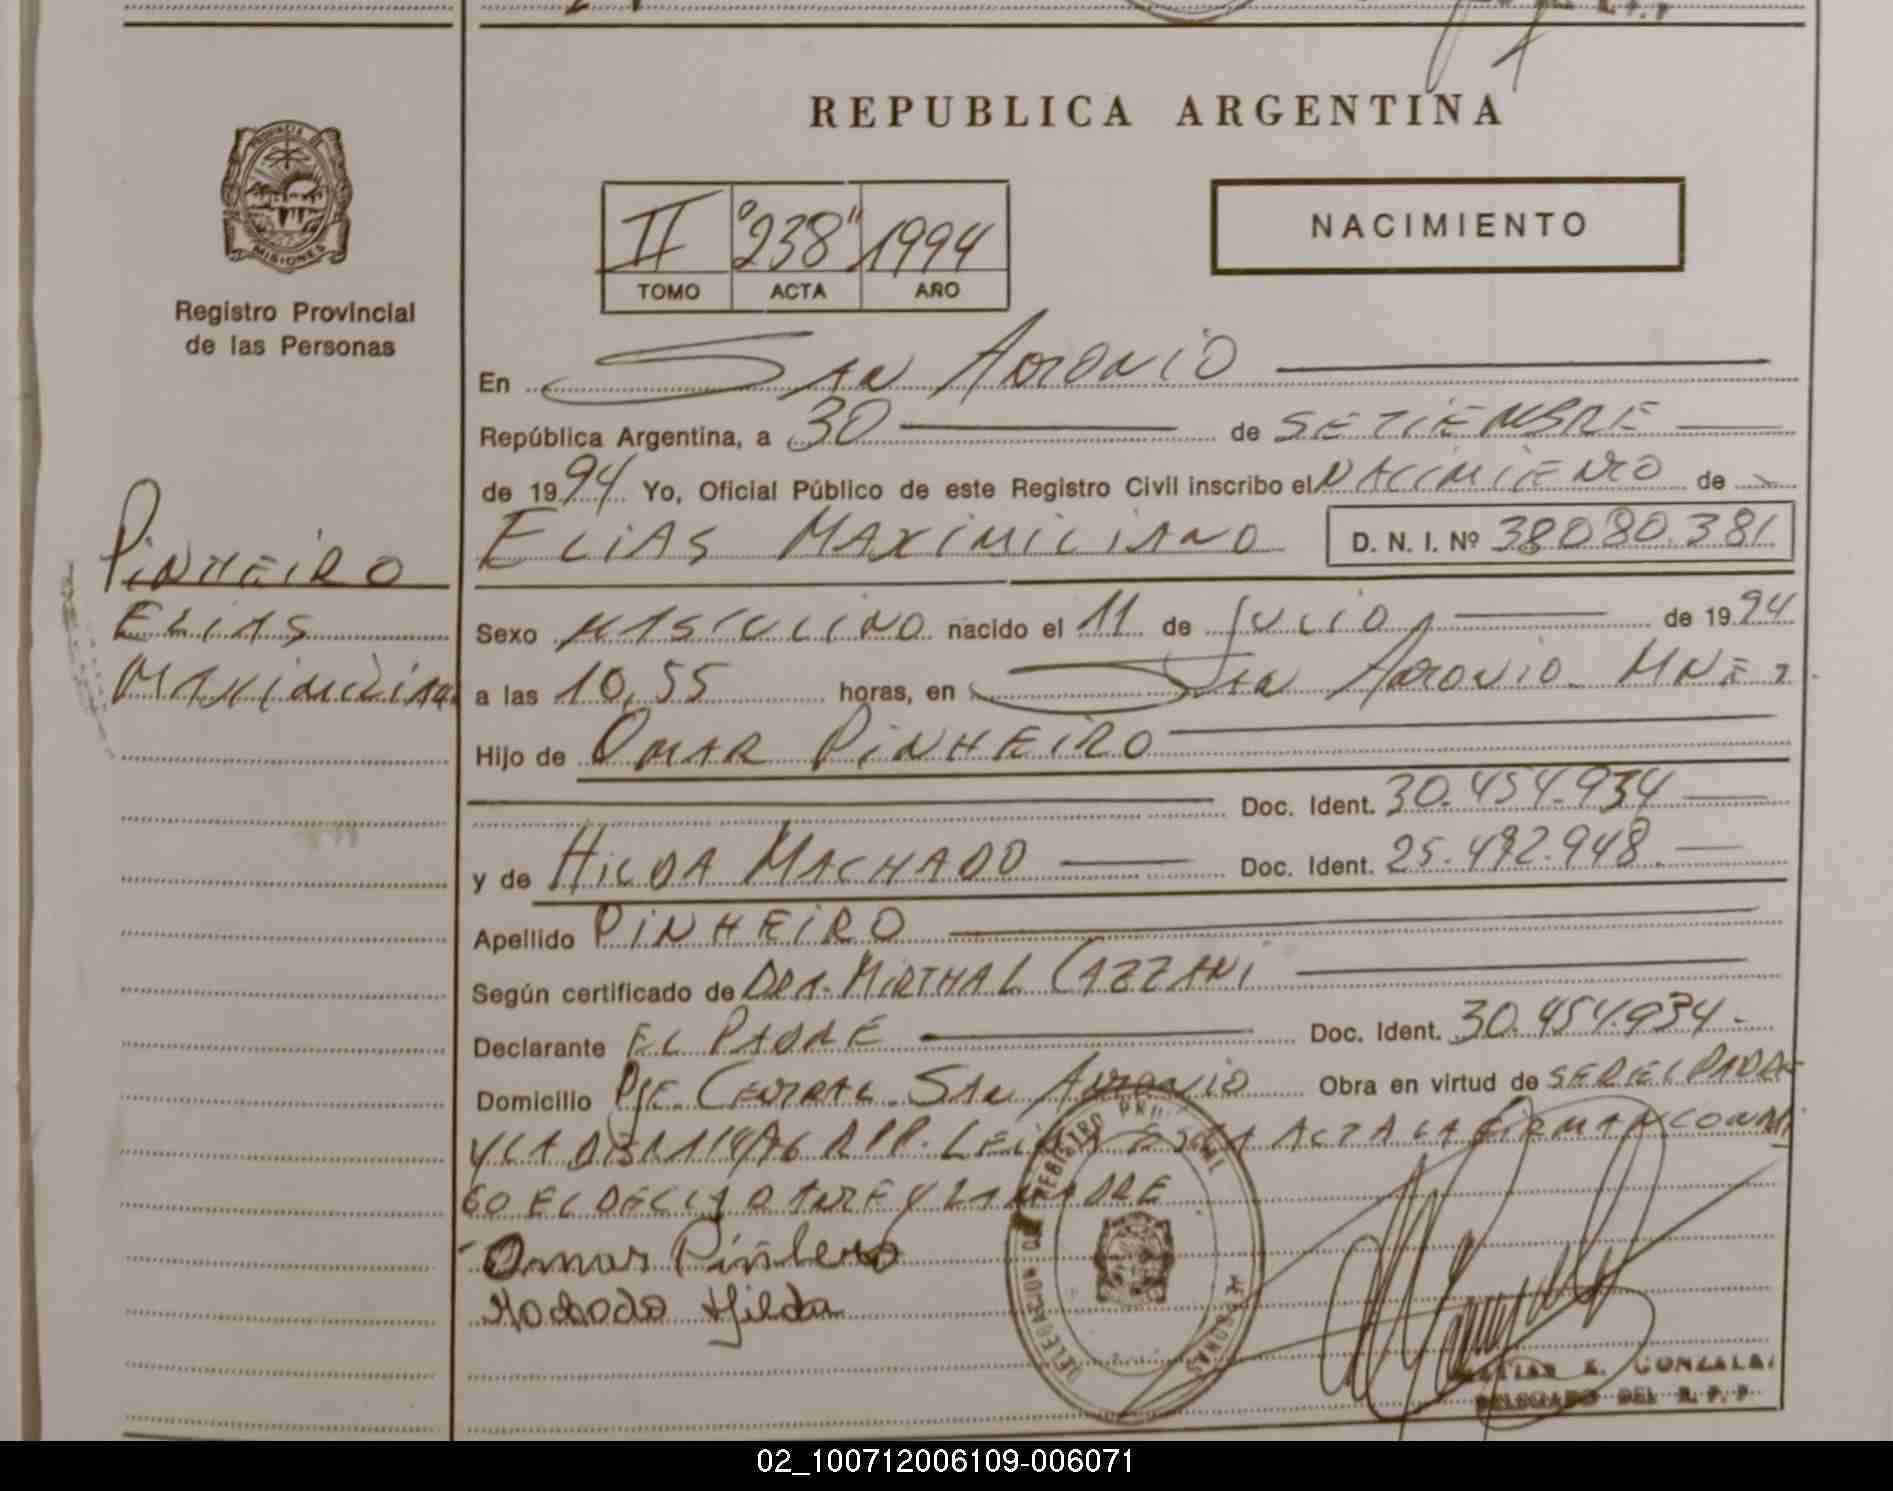 REPUBLICA ARGENTINA
PROVINCIA
MISIONES
Registro Provincial
de las Personas
II "238" 1994
TOMO ACTA AÑO
NACIMIENTO
En San Antonio
República Argentina, a 30 de SETIEMBRE
de 1994 Yo, Oficial Público de este Registro Civil inscribo el NACIMIENTO de
ELIAS MAXIMILIANO D. N. I. Nº 38080.381
PINHEIRO
ELIAS
MAXIMILIANO
Sexo MASCULINO nacido el 11 de JULIO de 1994
a las 10,55 horas, en San Antonio. MNES.
Hijo de OMAR PINHEIRO
Doc. Ident. 30.454.934
y de HILDA MACHADO Doc. Ident. 25.492.948.
Apellido PINHEIRO
Según certificado de DRA. MIRTHA L CAZZANI
Declarante EL PADRE Doc. Ident. 30.454.934.-
Domicilio Pje. CENTRAL. SAN ANTONIO Obra en virtud de SER EL PADRE
Y LA R.P.P. LEIDA ESTA ACTA LA FIRMAN CONMI
GO EL DECLARANTE Y LA MADRE
Omar Piñhero
Machado Hilda
DELEGACION DEL REGISTRO PROVINCIAL PERSONAS
GONZALEZ
DELEGADO DEL R. P. P
02_100712006109-006071